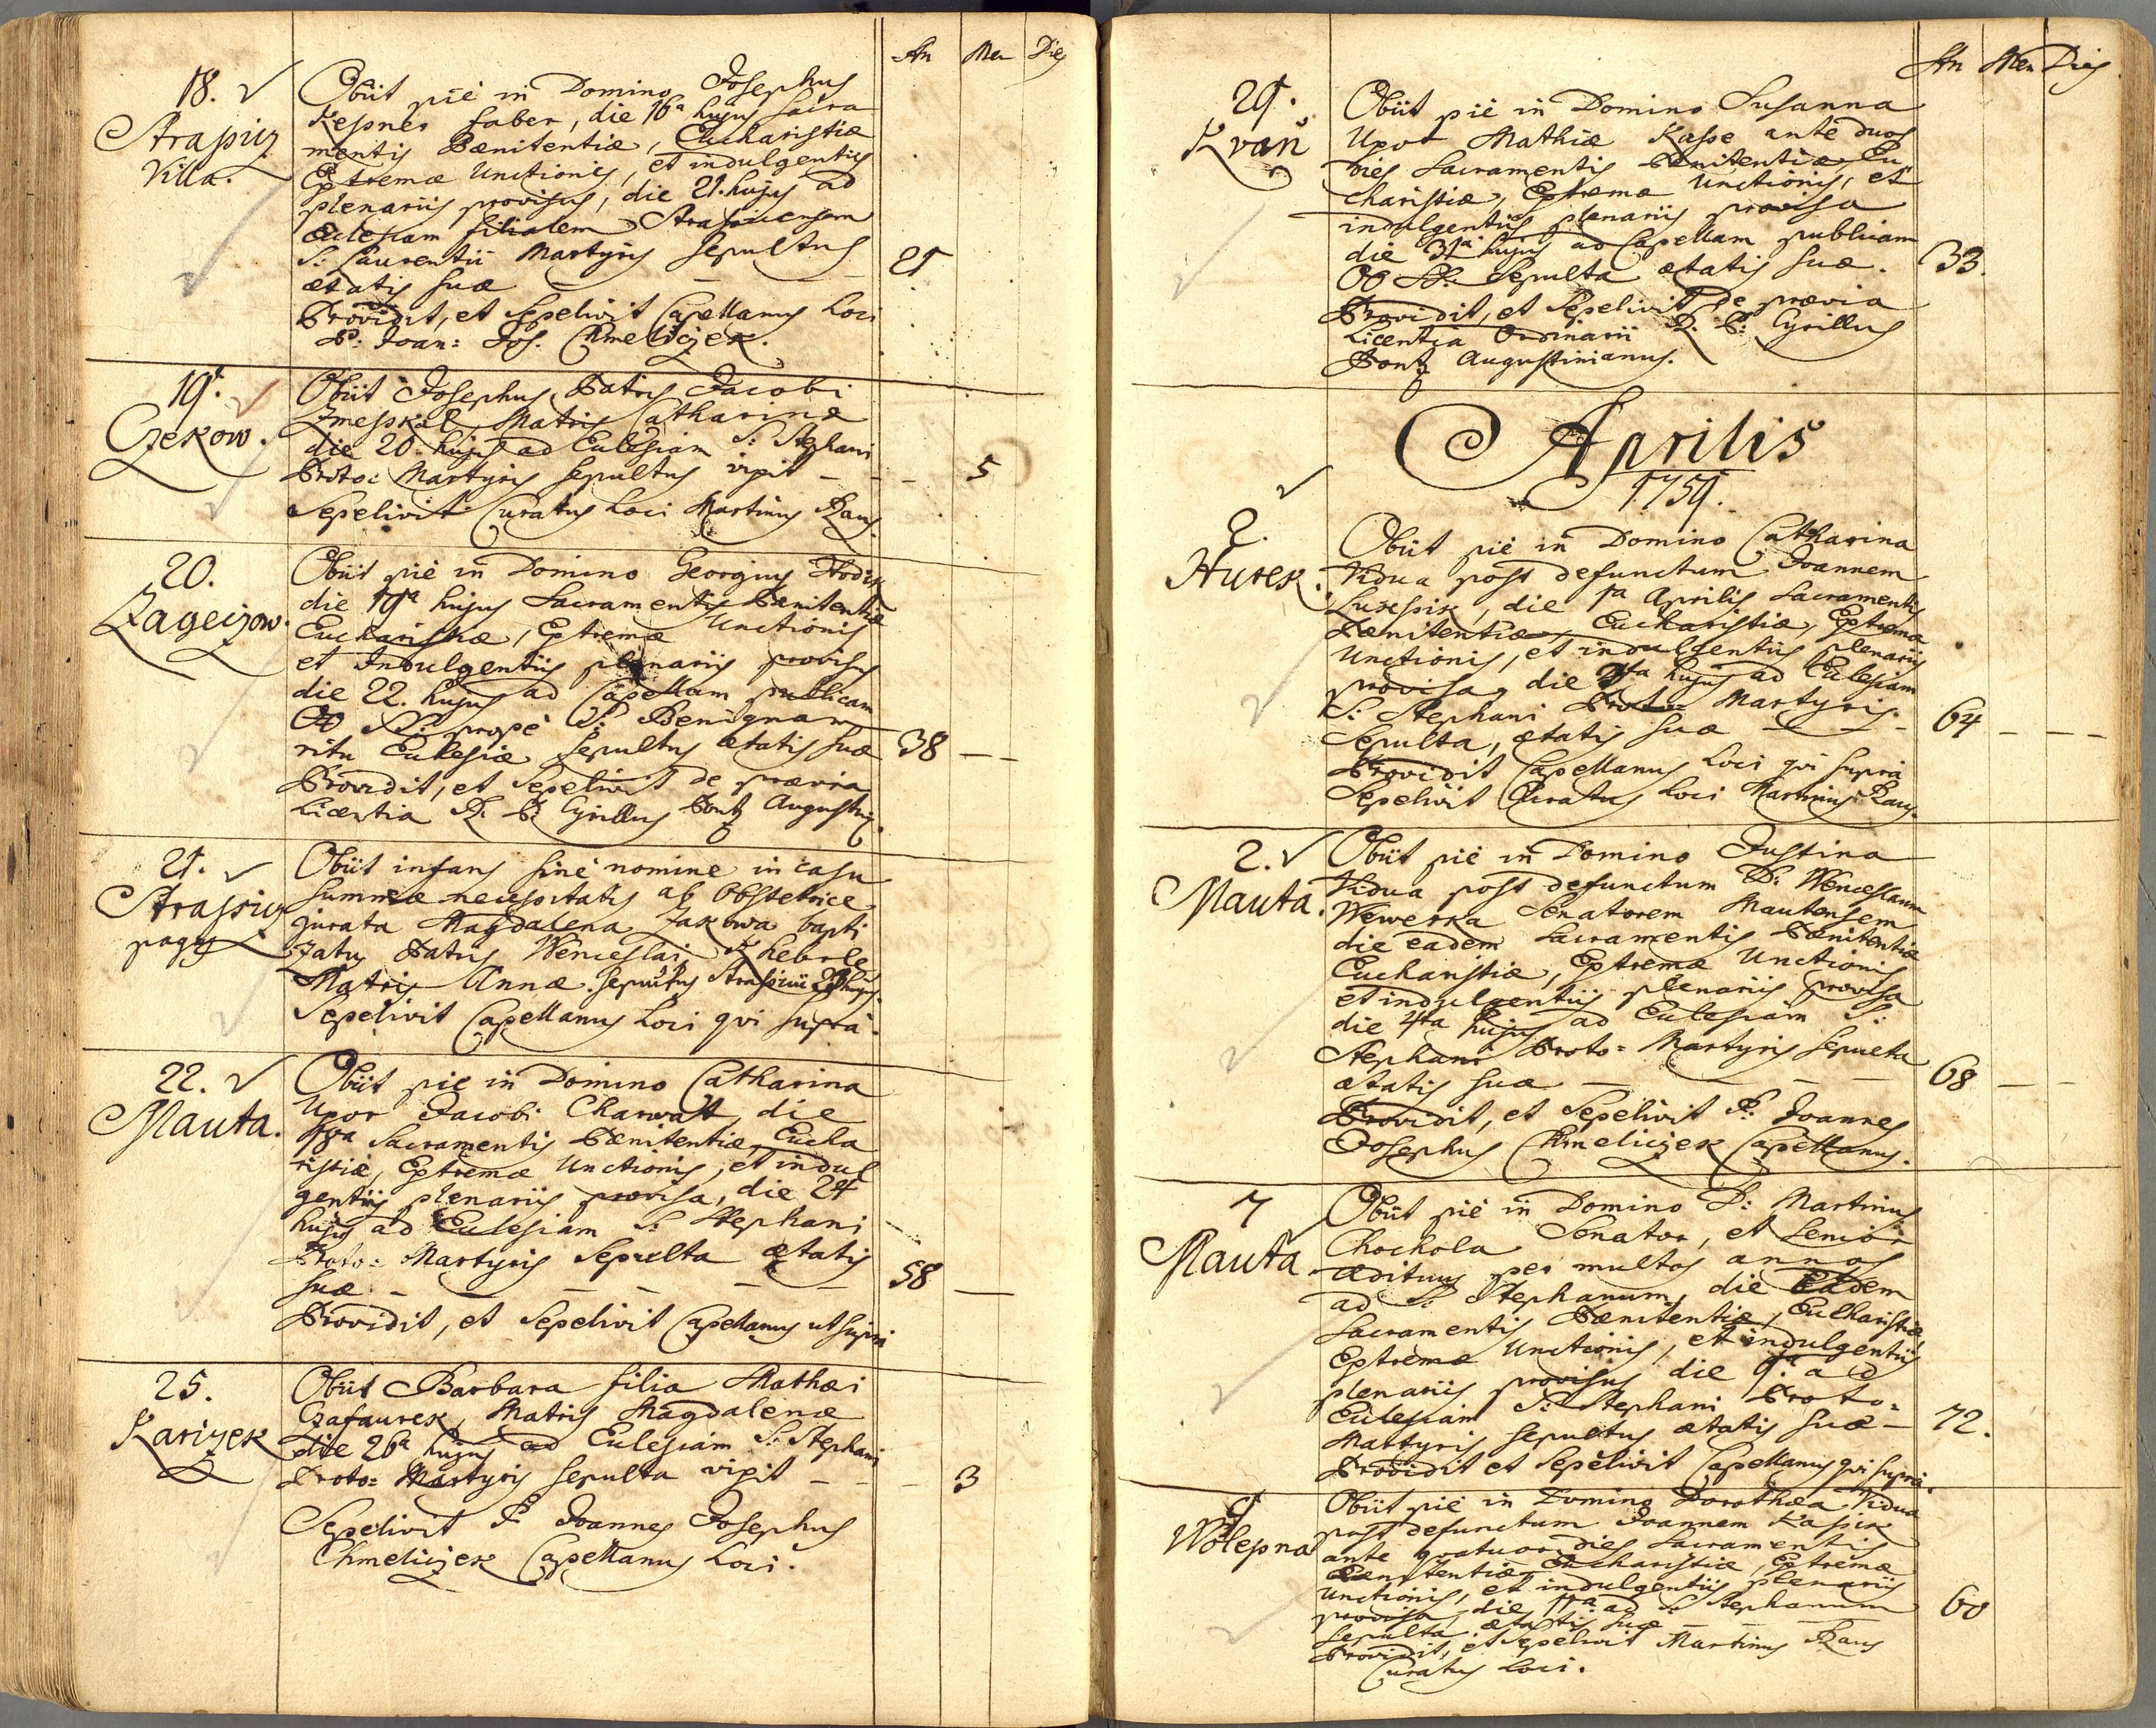 An Men Dies
18.
Strasicz
Villa.
Obiit piè in Domino Josephus
Kepner faber, die 16a hujus Sacra
mentis Pænitentiæ, Eucharistiæ
Extremæ Unctionis, et indulgentiis
plenariis provisus, die 21. hujus ad
Ecclesiam filialem Strasicensem
S: Laurentii Martyris Sepultus
ætatis suæ — — — 21
Providit, et Sepelivit Capellanus Loci
P: Joan: Jos. Chmeliczek.
19.
Czekow.
Obiit Josephus, Patris Jacobi
Zmeskal, Matris Catharinæ
die 20. hujus ad Ecclesiam S: Stephani
Proto: Martyris sepultus vixit — — — 5
Sepelivit Curatus Loci Martinus Raus.
20.
Zageczow.
Obiit piè in Domino Georgius
die 19a hujus Sacramentis Pænitentiæ
Eucharistiæ, Extremæ Unctionis
et Indulgentiis plenariis provisus
die 22. hujus ad Capellam publicam
OO SS: propè S: Benignam
ritu Ecclesiæ sepultus ætatis suæ 38 — —
Providit, et Sepelivit de prævia
Licentia R. P: Cyrillus Pontz Augustin.
21.
Strasicz
pagus
Obiit infans sine nomine in casu
summæ necessitatis ab Obstetrice
jurata Magdalena Jakowa bapti
zatus Patris Wenceslai Kheberle
Matris Annæ. sepultus Strasicii 23 hujus.
Sepelivit Capellanus Loci qvi suprà.
22.
Mauta.
Obiit piè in Domino Catharina
Uxor Jacobi Charwatt, die
18a Sacramentis Pænitentiæ, Eucha
ristiæ, Extremæ Unctionis, et indul
gentiis plenariis provisa, die 24
hujus ad Ecclesiam S: Stephani
Proto: Martyris Sepulta ætatis
suæ — — — — 58 —
Providit, et Sepelivit Capellanus ut suprà
25.
Karizek
Obiit Barbara filia Mathæi
Czafaurek, Matris Magdalenæ
die 26a hujus ad Ecclesiam S: Stephani
Proto: Martyris sepulta vixit — — — 3
Sepelivit P. Joannes Josephus
Chmeliczek Capellanus Loci.
An Men Dies
29.
Kvan
Obiit piè in Domino Susanna
Uxor Mathiæ Kasse ante duos
dies Sacramentis Pænitentiæ Eu
charistiæ, Extremæ Unctionis, et
indulgentiis plenariis provisa
die 31a hujus ad Capellam publicam
OO SS: sepulta ætatis suæ. 33.
Providit, et Sepelivit de prævia
Licentia Ordinarii R. P: Cyrillus
Pontz Augustinianus.
Aprilis
1759.
2.
Hurek.
Obiit piè in Domino Catharina
Vidua post defunctum Joannem
die 1a Aprilis Sacramentis
Pænitentiæ Eucharistiæ, Extremæ
Unctionis, et indulgentiis plenariis
provisa, die hujus ad Ecclesiam
S: Stephani Proto: Martyris
Sepulta, ætatis suæ — — — 64 — — —
Providit Capellanus Loci qvi suprà
Sepelivit Curatus Loci Martinus Raus.
2.
Mauta.
Obiit piè in Domino Justina
Vidua post defunctum D: Wenceslaum
Wewerka Senatorem Mautensem
die eadem Sacramentis Pænitentiæ
Eucharistiæ, Extremæ Unctionis
et indulgentiis plenariis provisa
die 4ta hujus ad Ecclesiam S:
Stephani Proto: Martyris Sepulta
ætatis suæ — — — 68 — —
Providit, et Sepelivit P: Joannes
Josephus Chmeliczek Capellanus.
7
Mauta
Obiit piè in Domino D: Martinus
Chochola Senator, et Senior
ædituus per multos annos
ad S: Stephanum, die Eadem
Sacramentis Pænitentiæ, Eucharistiæ
Extremæ Unctionis, et indulgentiis
plenariis provisus die 9a ad
Ecclesiam S: Stephani Proto:
Martyris sepultus ætatis suæ — 72.
Providit et Sepelivit Capellanus qvi suprà.
9
Wolepna
Obiit piè in Domino Dorothæa Vidua
post defunctum Joannem Kasik
ante qvatuor dies Sacramentis
Pænitentiæ Eucharistiæ, Extremæ
Unctionis, et indulgentiis plenariis
provisa, die 11a ad S: Stephanum
sepulta ætatis suæ — — 60
Providit, et Sepelivit Martinus Raus
Curatus Loci.